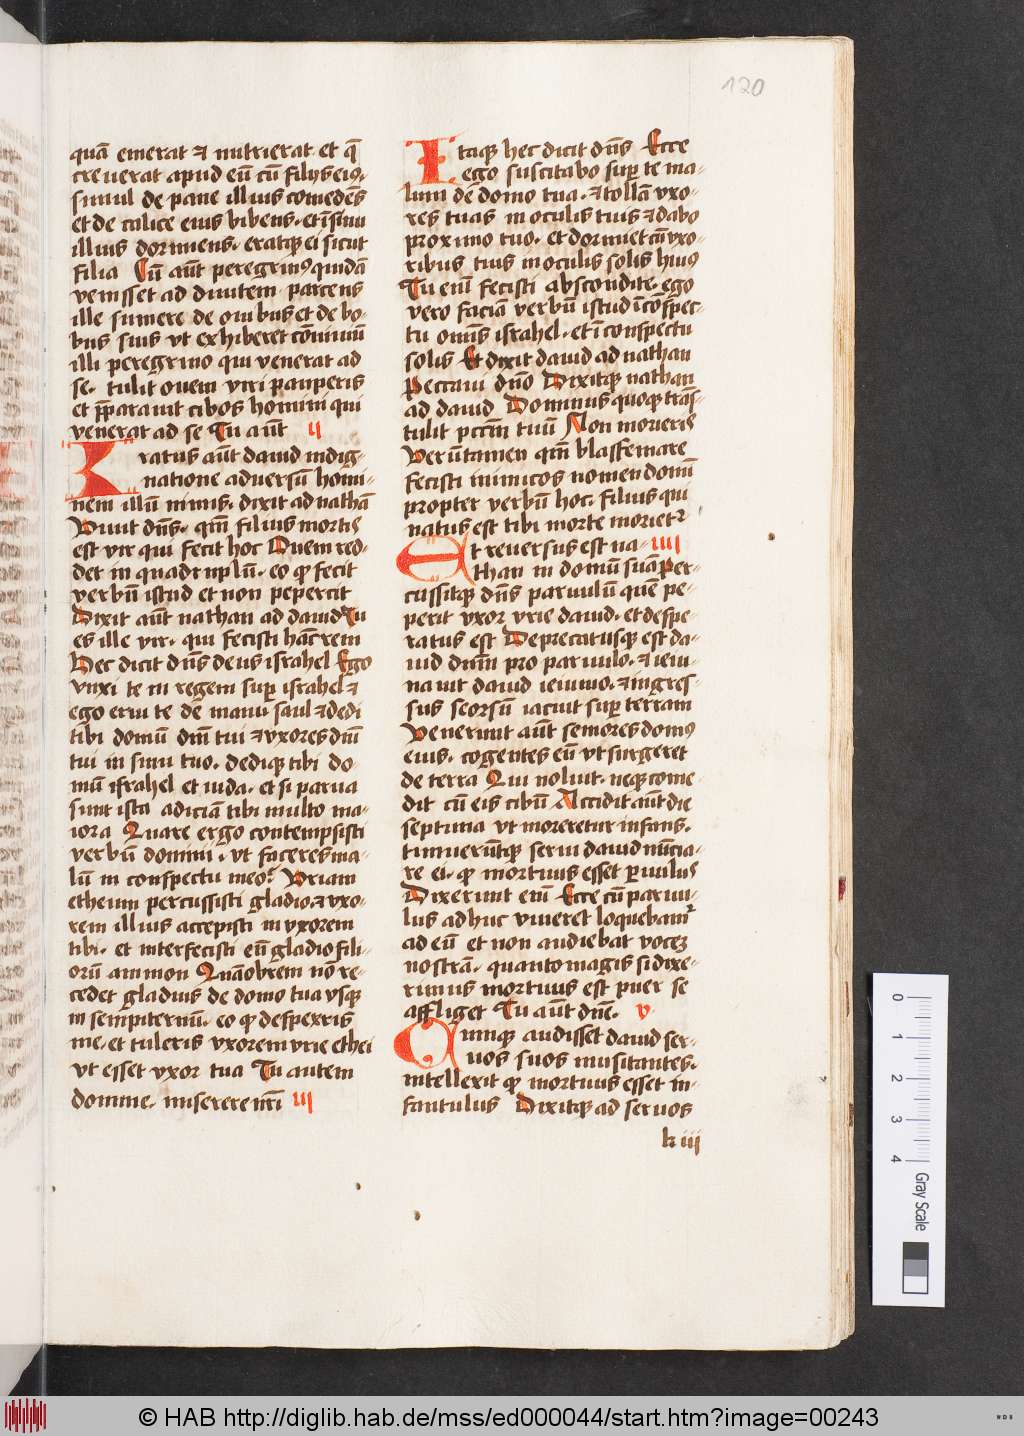 120
quā emerat ⁊ nutrierat et q̄
creuerat apud eū cū filijs eiꝰ.
simul de pane illius comedēs
et de calice eius bibens. et ī sinu
illius dormiens. eratqꝫ ei sicut
filia Cū aūt peregrinꝰ quidā
venisset ad diuitem parcens
ille sumere de ouibus et de bo-
bus suis vt exhiberet cōuiuiū
illi peregrino qui venerat ad
se. tulit ouem viri pauperis
et p̄parauit cibos homini qui
venerat ad se Tu aūt ij
Iratus aūt dauid indig-
natione aduersū homi-
nem illū nimis. dixit ad nathā
Viuit dn̄s. qm̄ filius mortis
est vir qui fecit hoc Ouem red-
det in quadruplū. eo ꝙ fecit
verbū istud et non pepercit
Dixit aūt nathan ad dauid Tu
es ille vir. qui fecisti hāc rem
Hec dicit dn̄s deus israhel Ego
vnxi te in regem suꝑ israhel ⁊
ego erui te de manu saul ⁊ dedi
tibi domū dn̄i tui ⁊ vxores dn̄i
tui in sinu tuo. dediqꝫ tibi do-
mū israhel et iuda. et si parua
sunt ista adiciā tibi multo ma-
iora Quare ergo contempsisti
verbū domini. vt faceres ma-
lū in conspectu meo. Vriam
etheum percussisti gladio. ⁊ vxo-
rem illius accepisti in vxorem
tibi. et interfecisti eū gladio fili-
orū ammon Quāobrem nō re-
cedet gladius de domo tua vsqꝫ
in sempiternū. eo ꝙ despexeris
me. et tuleris vxorem vrie ethei
vt esset vxor tua Tu autem
domine. miserere nr̄i iij
Itaqꝫ hec dicit dn̄s Ecce
ego suscitabo suꝑ te ma-
lum de domo tua. ⁊ tollā vxo-
res tuas in oculis tuis ⁊ dabo
proximo tuo. et dormiet cū vxo-
ribus tuis in oculis solis huiꝰ
Tu enī fecisti abscondite. ego
vero faciā verbū istud ī cōspec-
tu omīs israhel. et ī conspectu
solis Et dixit dauid ad nathan
Peccaui dn̄o Dixitqꝫ nathan
ad dauid Dominus quoqꝫ trās-
tulit pccm̄ tuū Non morieris
Verūtamen qm̄ blasfemare
fecisti inimicos nomen domī
propter verbū hoc. filius qui
natus est tibi morte morietr
Et reuersus est na- iiij
than in domū suā Per-
cussitqꝫ dn̄s paruulū quē pe-
perit vxor vrie dauid. et despe-
ratus est Deprecatusqꝫ est da-
uid dn̄m pro paruulo. ⁊ ieiu-
nauit dauid ieiunio. ⁊ ingres-
sus seorsū iacuit suꝑ terram
Venerunt aūt seniores domꝰ
eius. cogentes eū vt surgeret
de terra Qui noluit. neqꝫ come-
dit cū eis cibū Accidit aūt die
septima vt moreretur infans.
timuerūtqꝫ serui dauid nūcia-
re ei. ꝙ mortuus esset ꝑuulus
Dixerunt enī Ecce cū paruu-
lus adhuc viueret loquebamr
ad eū et non audiebat vocez
nostrā. quanto magis si dixe-
rimus mortuus est puer se
affliget Tu aūt dn̄e. v
Cumqꝫ audisset dauid ser-
uos suos musitantes.
intellexit ꝙ mortuus esset in-
fantulus Dixitqꝫ ad seruos
k iij
0 1 2 3 4 Gray Scale
© HAB http://diglib.hab.de/mss/ed000044/start.htm?image=00243